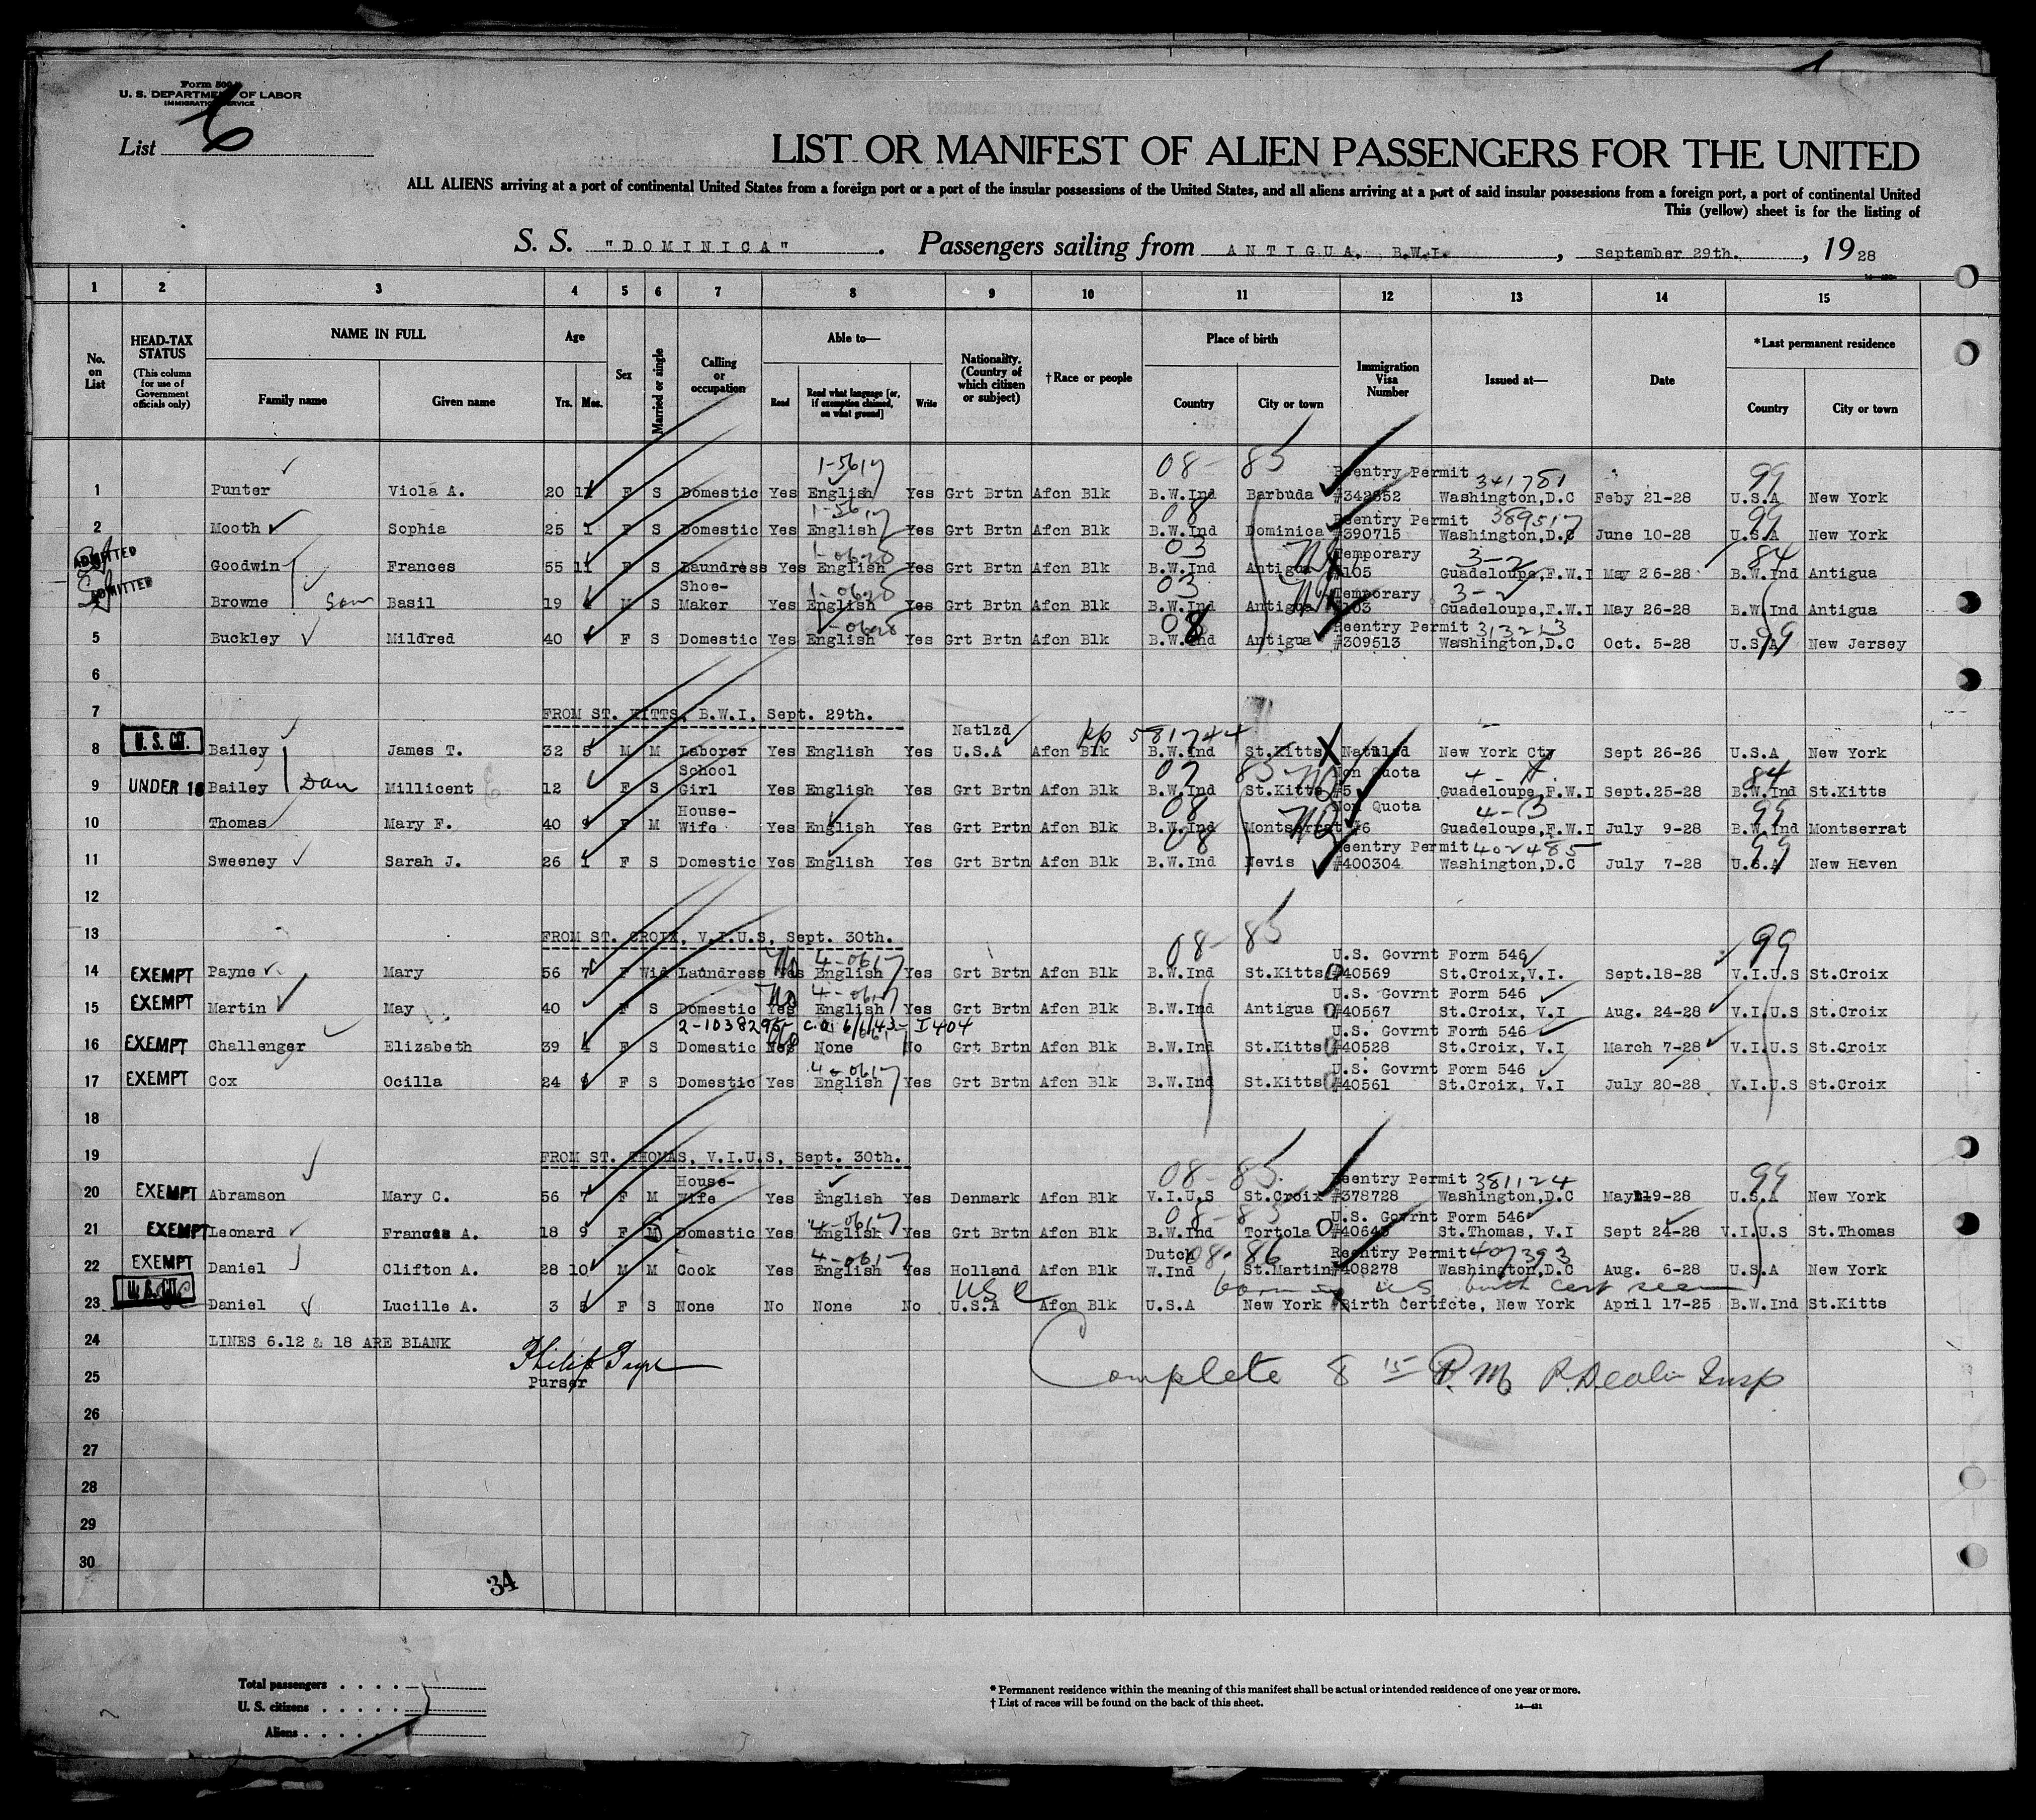 Form 500
U. S. DEPARTMENT OF LABOR
IMMIGRATION SERVICE
List 6
LIST OR MANIFEST OF ALIEN PASSENGERS FOR THE UNITED
ALL ALIENS arriving at a port of continental United States from a foreign port or a port of the insular possessions of the United States, and all aliens arriving at a port of said insular possessions from a foreign port, a port of continental United
This (yellow) sheet is for the listing of
S. S. "DOMINICA" . Passengers sailing from ANTIGUA, B.W.I. , September 29th. , 19 28
1 2 3 4 5 6 7 8 9 10 11 12 13 14 15
No. on List
HEAD-TAX STATUS
(This column for use of Government officials only)
NAME IN FULL
Family name Given name
Age
Yrs. Mos.
Sex
Married or single
Calling or occupation
Able to—
Read
Read what language [or, if exemption claimed, on what ground]
Write
Nationality. (Country of which citizen or subject)
† Race or people
Place of birth
Country City or town
Immigration Visa Number
Issued at—
Date
*Last permanent residence
Country City or town
1-5617 08-85 Reentry Permit 341781 99
1 Punter Viola A. 20 11 F S Domestic Yes English Yes Grt Brtn Afcn Blk B.W.Ind Barbuda #342852 Washington,D.C Feby 21-28 U.S.A New York
1-5617 08 Reentry Permit 389517 99
2 Mooth Sophia 25 1 F S Domestic Yes English Yes Grt Brtn Afcn Blk B.W.Ind Dominica #390715 Washington,D.C June 10-28 U.S.A New York
ADMITTED 03 Temporary 3-2 84
Goodwin Frances 55 11 F S Laundress Yes English Yes Grt Brtn Afcn Blk B.W.Ind Antigua #105 Guadeloupe,F.W.I May 26-28 B.W.Ind Antigua
ADMITTED Shoe- 03 Temporary 3-2
Browne Son Basil 19 M S Maker Yes English Yes Grt Brtn Afcn Blk B.W.Ind Antigua #103 Guadeloupe,F.W.I May 26-28 B.W.Ind Antigua
08 Reentry Permit 313213
5 Buckley Mildred 40 F S Domestic Yes English Yes Grt Brtn Afcn Blk B.W.Ind Antigua #309513 Washington,D.C Oct. 5-28 U.S.A 99 New Jersey
6
7 FROM ST. KITTS, B.W.I, Sept. 29th.
U. S. CIT. Natlzd 581744
8 Bailey James T. 32 5 M M Laborer Yes English Yes U.S.A Afcn Blk B.W.Ind St.Kitts Natulzd New York Cty Sept 26-26 U.S.A New York
School 83 Non Quota 84
9 UNDER 16 Bailey Dau Millicent 12 F S Girl Yes English Yes Grt Brtn Afcn Blk B.W.Ind St.Kitts #5 Guadeloupe,F.W.I Sept.25-28 B.W.Ind St.Kitts
House- 08 Non Quota 4-13 99
10 Thomas Mary F. 40 9 F M Wife Yes English Yes Grt Prtn Afcn Blk B.W.Ind Montserrat #6 Guadeloupe,F.W.I July 9-28 B.W.Ind Montserrat
08 Reentry Permit 402485 99
11 Sweeney Sarah J. 26 1 F S Domestic Yes English Yes Grt Brtn Afcn Blk B.W.Ind Nevis #400304 Washington,D.C July 7-28 U.S.A New Haven
12
13 FROM ST. CROIX, V.I.U.S, Sept. 30th. 08-85 99
No 4-0617 U.S. Govrnt Form 546
14 EXEMPT Payne Mary 56 7 F Wid Laundress Yes English Yes Grt Brtn Afcn Blk B.W.Ind St.Kitts #40569 St.Croix,V.I. Sept.18-28 V.I.U.S St.Croix
No 4-0617 U.S. Govrnt Form 546
15 EXEMPT Martin May 40 F S Domestic Yes English Yes Grt Brtn Afcn Blk B.W.Ind Antigua #40567 St.Croix, V.I Aug. 24-28 V.I.U.S St.Croix
2-1038295 C.O. 6/1/43- I 404 U.S. Govrnt Form 546
16 EXEMPT Challenger Elizabeth 39 4 F S Domestic No None No Grt Brtn Afcn Blk B.W.Ind St.Kitts #40528 St.Croix, V.I March 7-28 V.I.U.S St.Croix
4-0617 U.S. Govrnt Form 546
17 EXEMPT Cox Ocilla 24 F S Domestic Yes English Yes Grt Brtn Afcn Blk B.W.Ind St.Kitts #40561 St.Croix, V.I July 20-28 V.I.U.S St.Croix
18
19 FROM ST. THOMAS, V.I.U.S, Sept. 30th.
House- 08-85 Reentry Permit 381124 99
20 EXEMPT Abramson Mary C. 56 7 F M Wife Yes English Yes Denmark Afcn Blk V.I.U.S St.Croix #378728 Washington,D.C May 19-28 U.S.A New York
4-0617 08-83 U.S. Govrnt Form 546
21 EXEMPT Leonard Frances A. 18 9 F M Domestic Yes English Yes Grt Brtn Afcn Blk B.W.Ind Tortola St.Thomas, V.I Sept 24-28 V.I.U.S St.Thomas
4-0617 Dutch 08-86 Reentry Permit 407393
22 EXEMPT Daniel Clifton A. 28 10 M M Cook Yes English Yes Holland Afcn Blk W.Ind St.Martin #408278 Washington,D.C Aug. 6-28 U.S.A New York
U. S. CIT. USC born in US birth cert seen
23 Daniel Lucille A. 3 5 F S None No None No U.S.A Afcn Blk U.S.A New York Birth Certfcte, New York April 17-25 B.W.Ind St.Kitts
24 LINES 6.12 & 18 ARE BLANK
25 Purser Complete 8 15 P.M. Insp
26
27
28
29
30
34
Total passengers . . . .
U. S. citizens . . . . .
Aliens . . . . .
* Permanent residence within the meaning of this manifest shall be actual or intended residence of one year or more.
† List of races will be found on the back of this sheet.
14—421